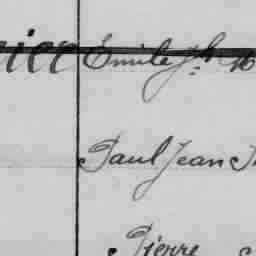 Emile Jh
Paul Jean
Pierre